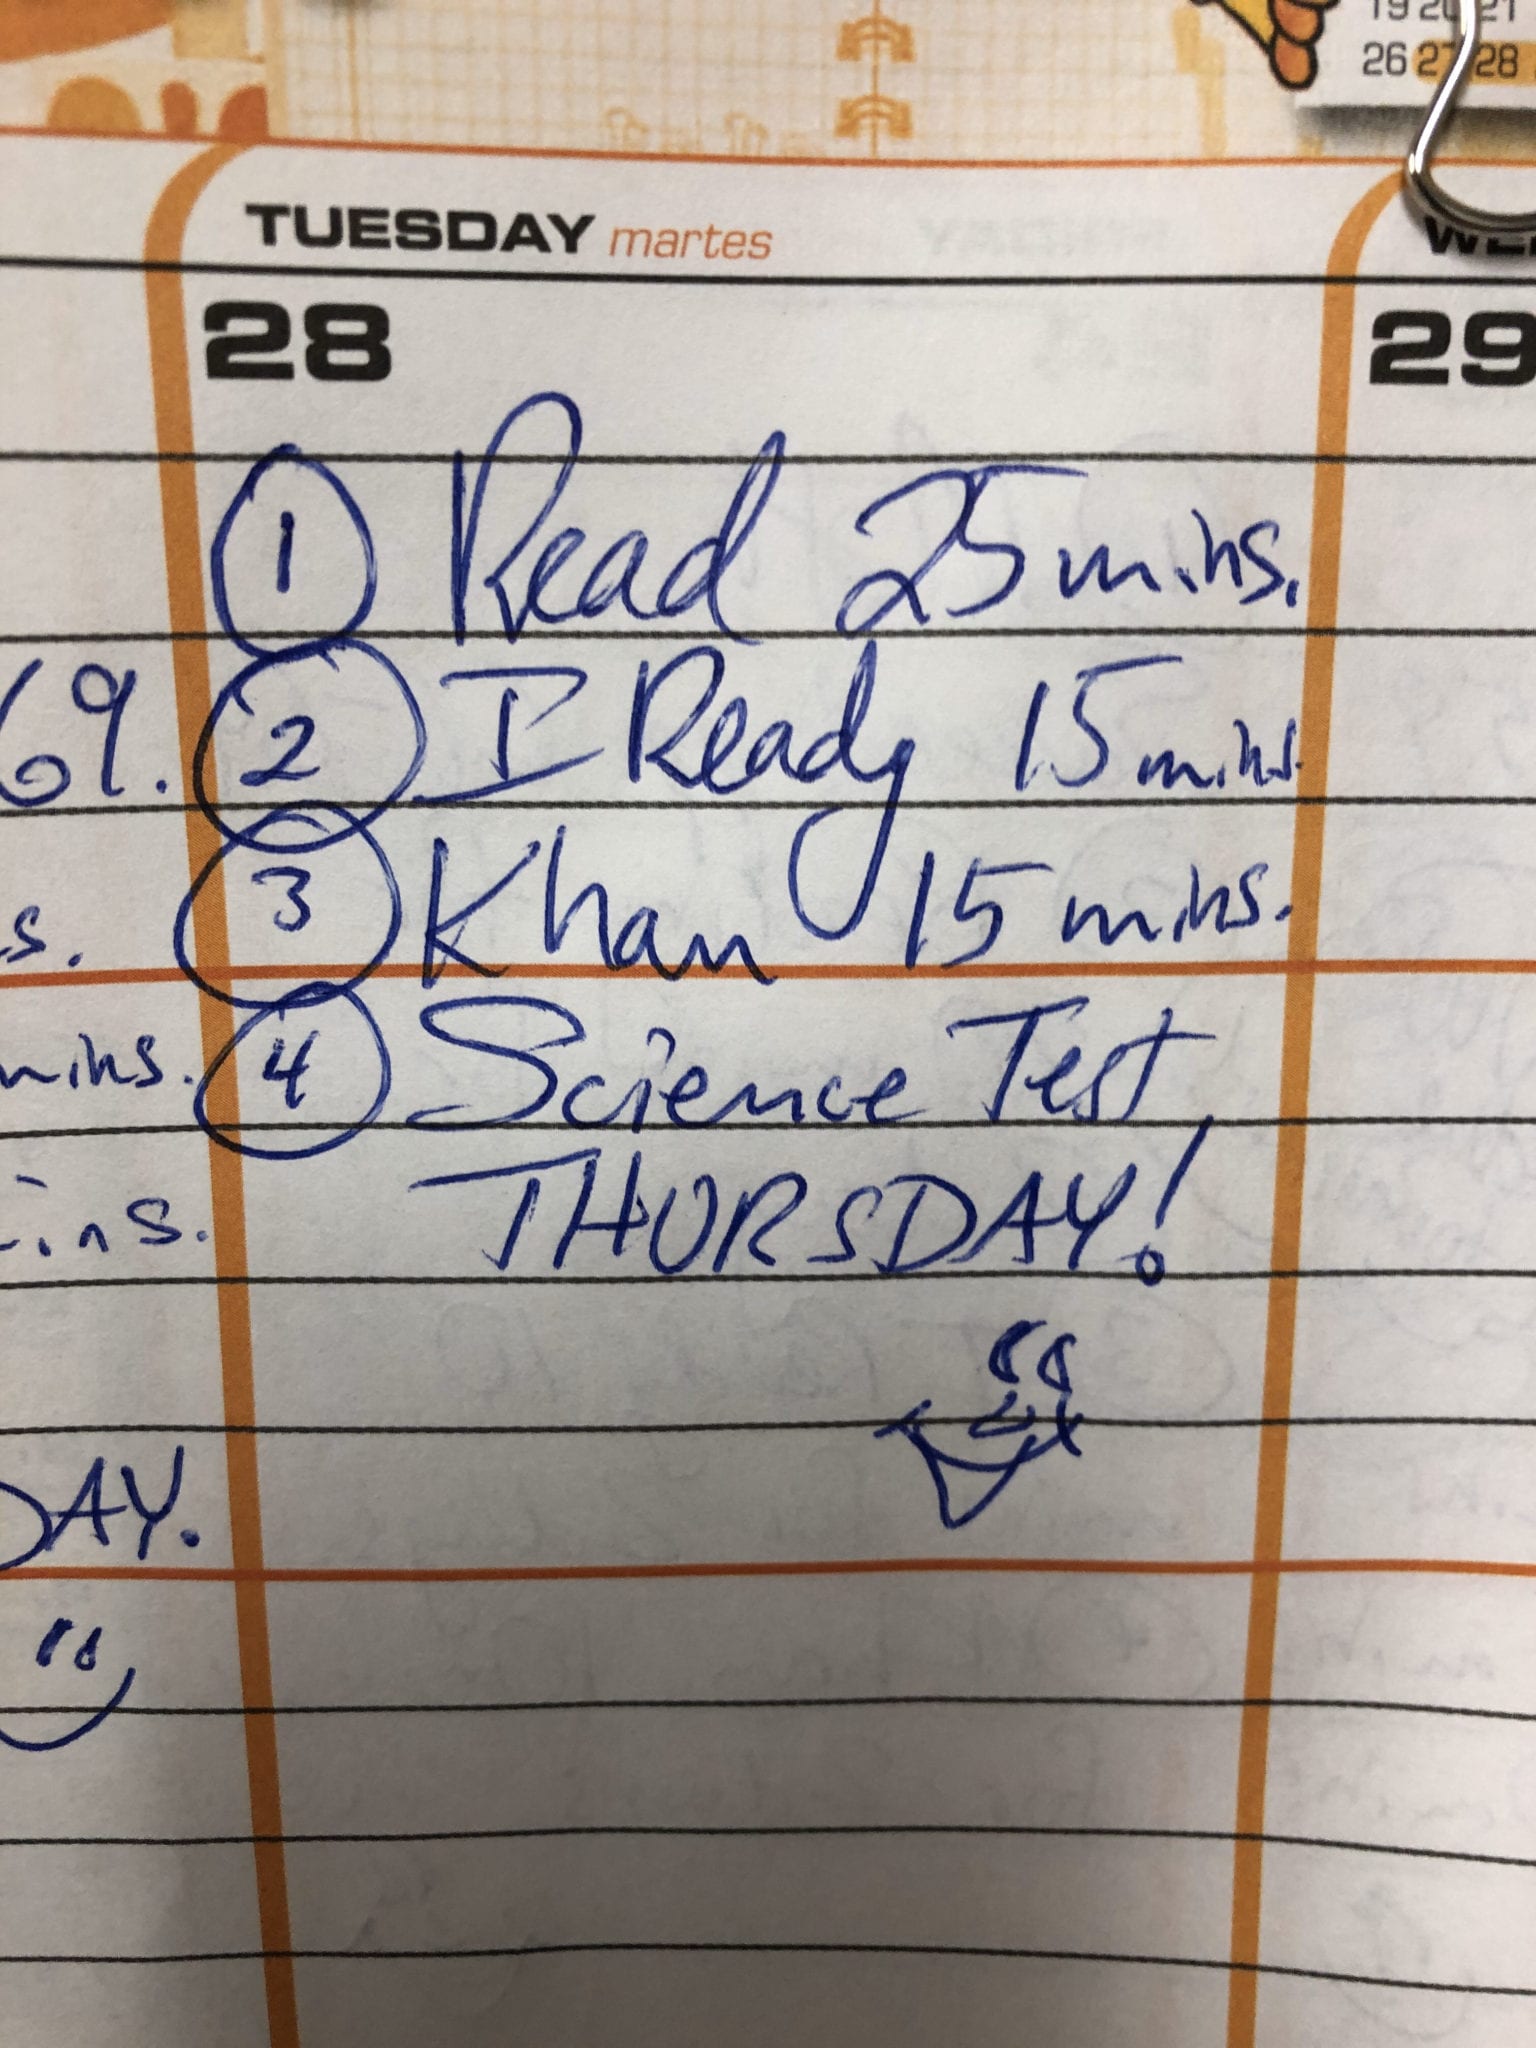 19 20 21
26 27 28
TUESDAY martes
28
29
1 Read 25 mins.
69. 2 I Ready 15 mins.
s. 3 Khan 15 mins.
mins. 4 Science Test
ins. THURSDAY!
DAY.